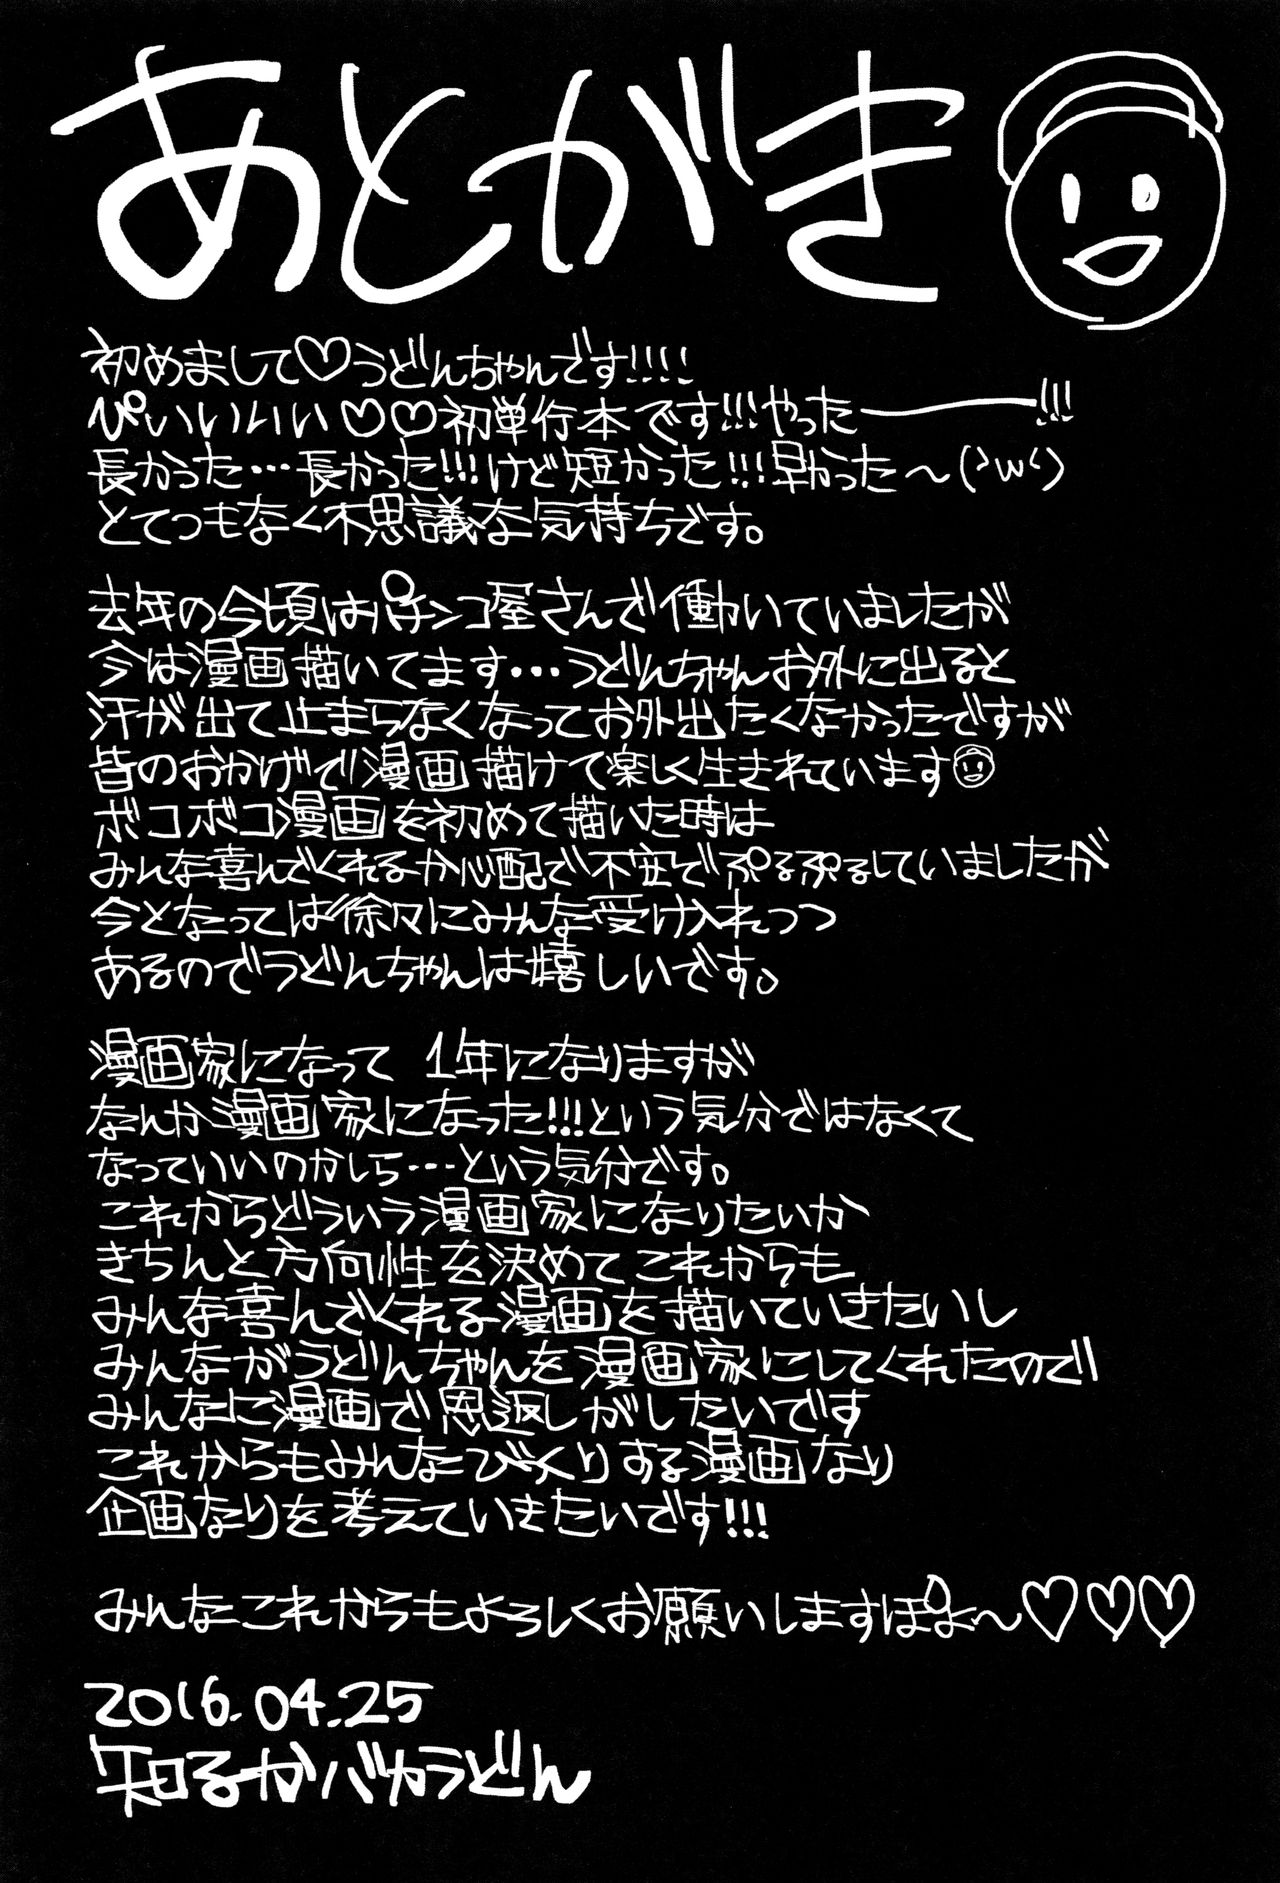 あとがき
初めまして♡うどんちゃんです!!!!
ぴぃいいいい♡♡初単行本です!!!やったーーー!!!
長かった…長かった!!!けど短かった!!!早かった～(`ω´)
とてつもなく不思議な気持ちです。
去年の今頃はパチンコ屋さんで働いていましたが
今は漫画描いてます…うどんちゃんお外に出ると
汗が出て止まらなくなってお外出たくなかったですが
皆のおかげで漫画描けて楽しく生きれています
ボコボコ漫画を初めて描いた時は
みんな喜んでくれるか心配で不安でぷるぷるしていましたが
今となっては徐々にみんな受け入れつつ
あるのでうどんちゃんは嬉しいです。
漫画家になって 1年になりますが
なんか漫画家になった!!!という気分ではなくて
なっていいのかしら…という気分です。
これからどういう漫画家になりたいか
きちんと方向性を決めてこれからも
みんな喜んでくれる漫画を描いていきたいし
みんながうどんちゃんを漫画家にしてくれたので
みんなに漫画で恩返しがしたいです
これからもみんなびっくりする漫画なり
企画なりを考えていきたいです!!!
みんなこれからもよろしくお願いしますぽよ～♡♡♡
2016.04.25
知るかバカうどん